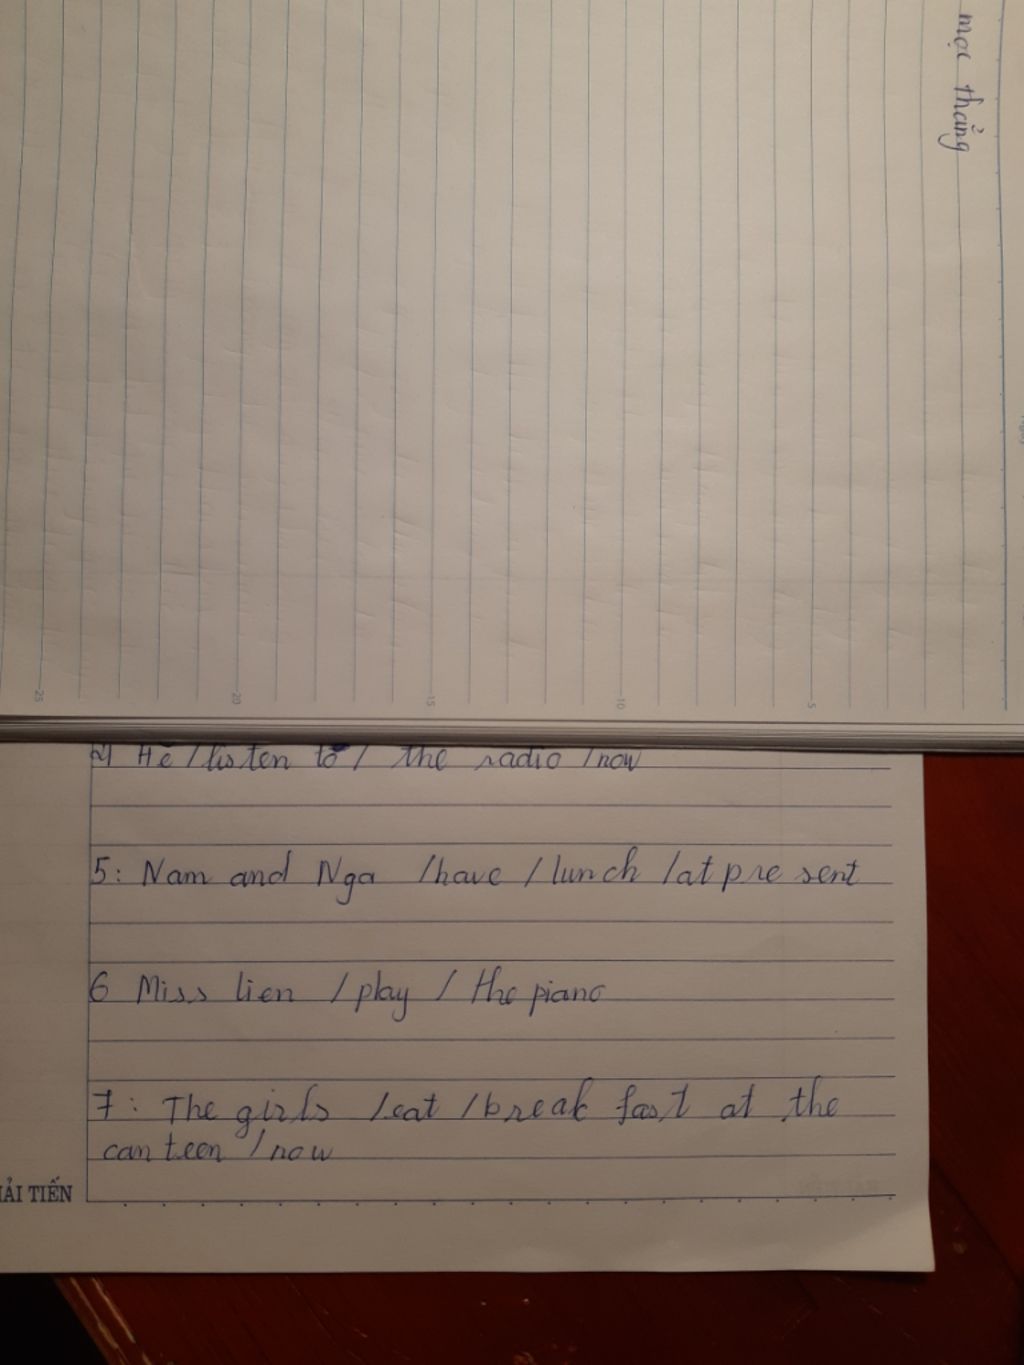 mọc thẳng
25 20 15 10 5
4 He / listen to / the radio / now
5: Nam and Nga / have / lunch / at pre sent
6 Miss lien / play / the piano
7: The girls / eat / break fast at the
can teen / now
ẢI TIẾN